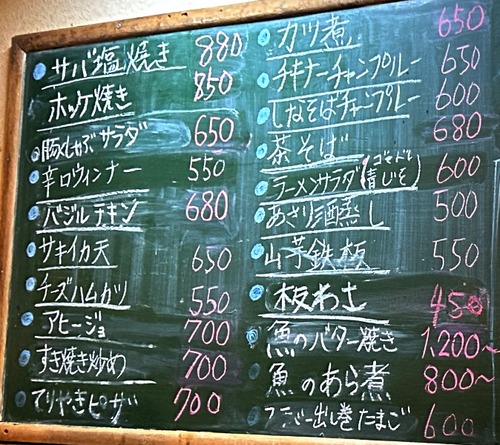 サバ塩焼き 880
ホッケ焼き 850
豚しゃぶサラダ 650
辛口ウィンナー 550
バジルチキン 680
サキイカ天 650
チーズハムカツ 550
アヒージョ 700
すき焼き炒め 700
てりやきピザ 700
カツ煮 650
チキナーチャンプルー 650
しなそばチャンプルー 600
茶そば 680
ラーメンサラダ(青じそ) 600
あさり酒蒸し 500
山芋鉄板 550
板わさ 450
魚のバター焼き 1,200〜
魚のあら煮 800〜
出し巻たまご 600